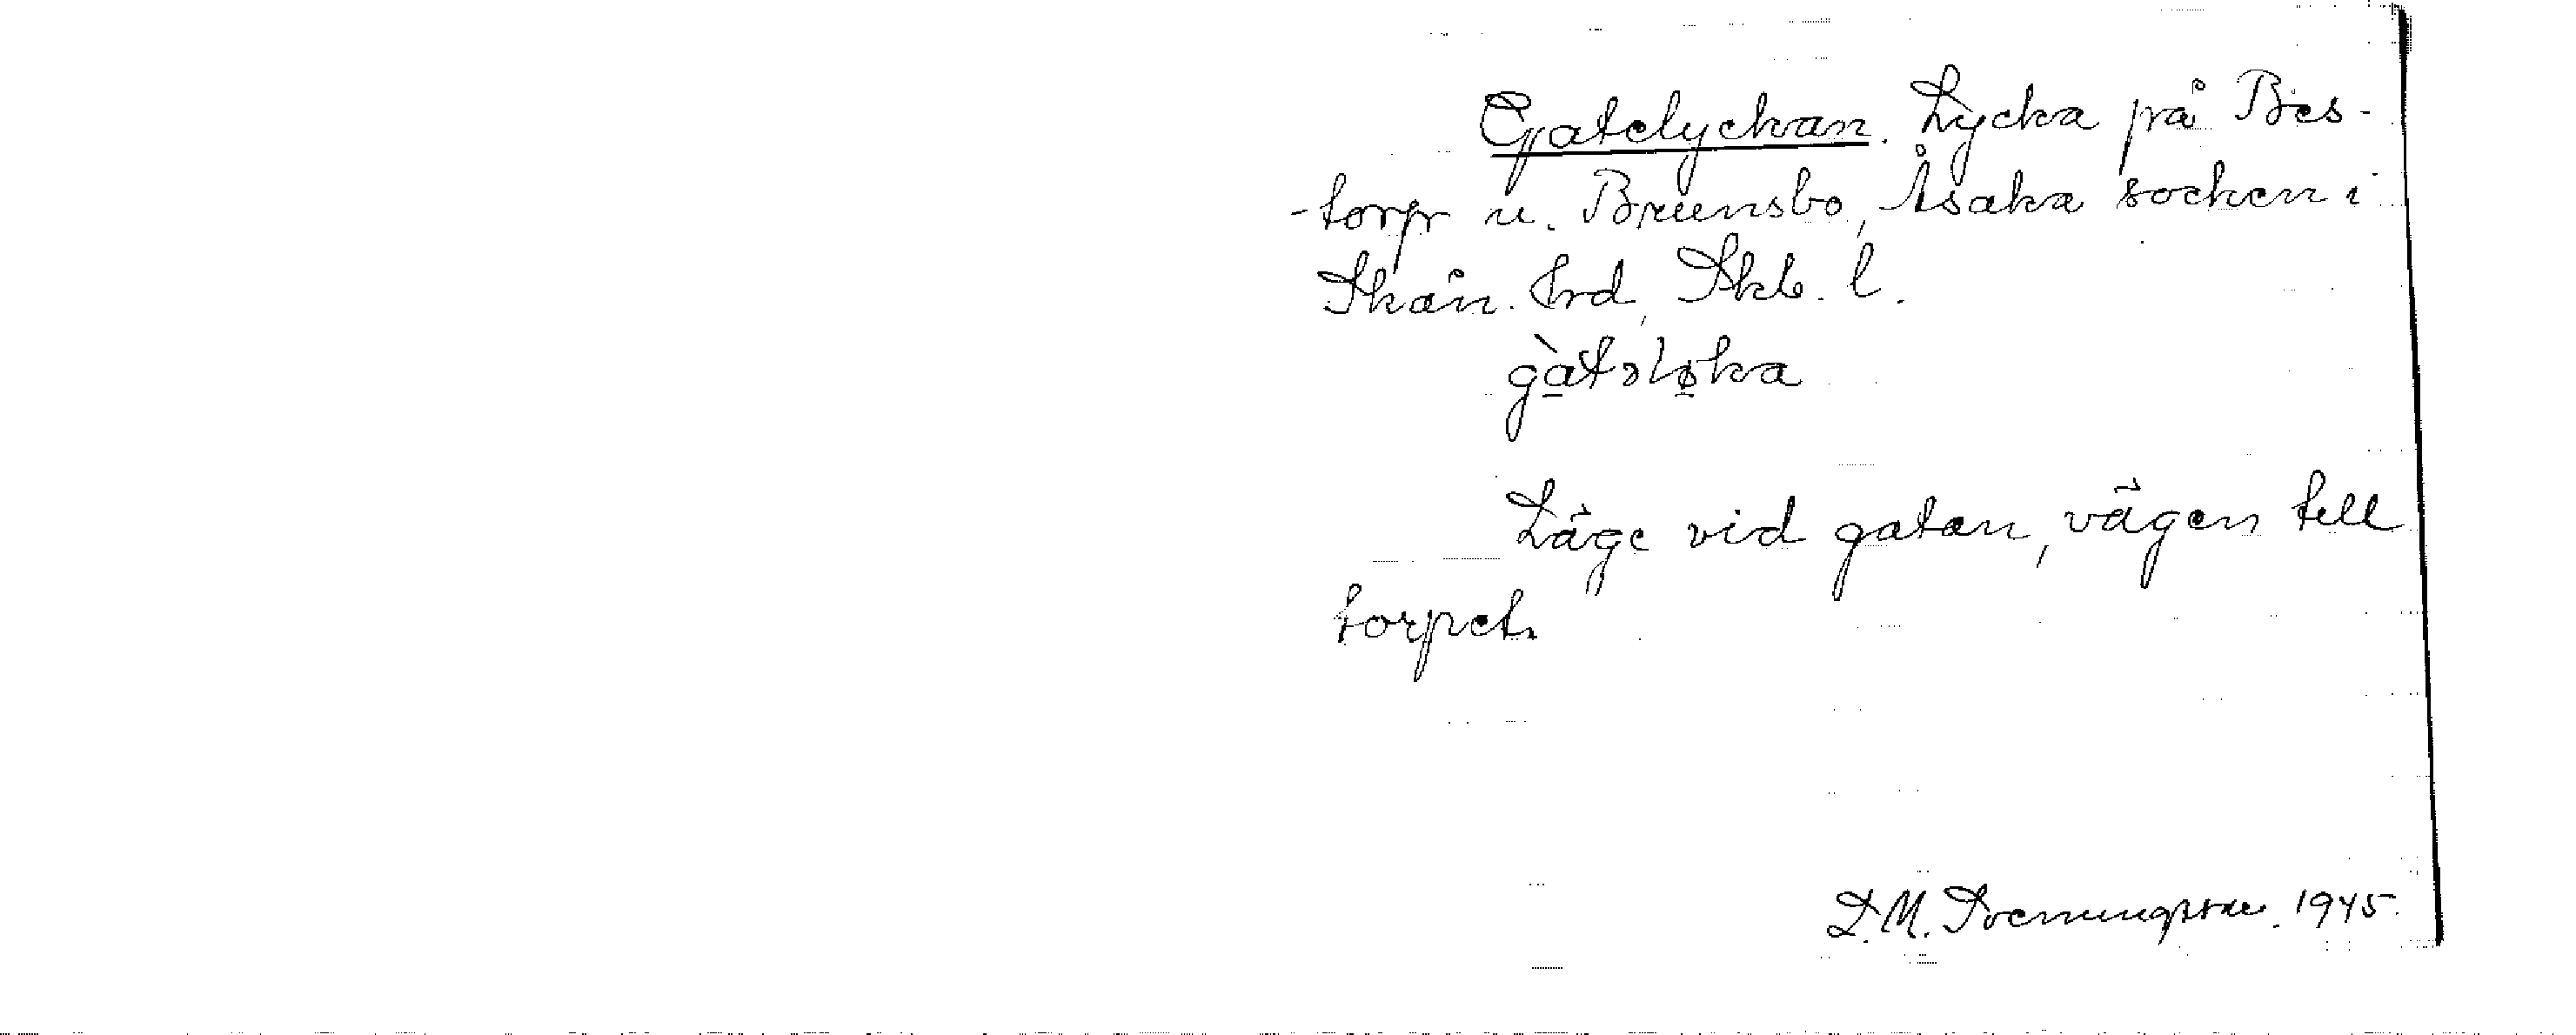 Gatelyckan. Lycka på Bes-
-torp u. Brunsbo, Åsaka socken i
Skån. hrd, Skb. l.
gàtəløka
Läge vid gatan, vägen till
torpet.
D.M. Svenningsson. 1945.